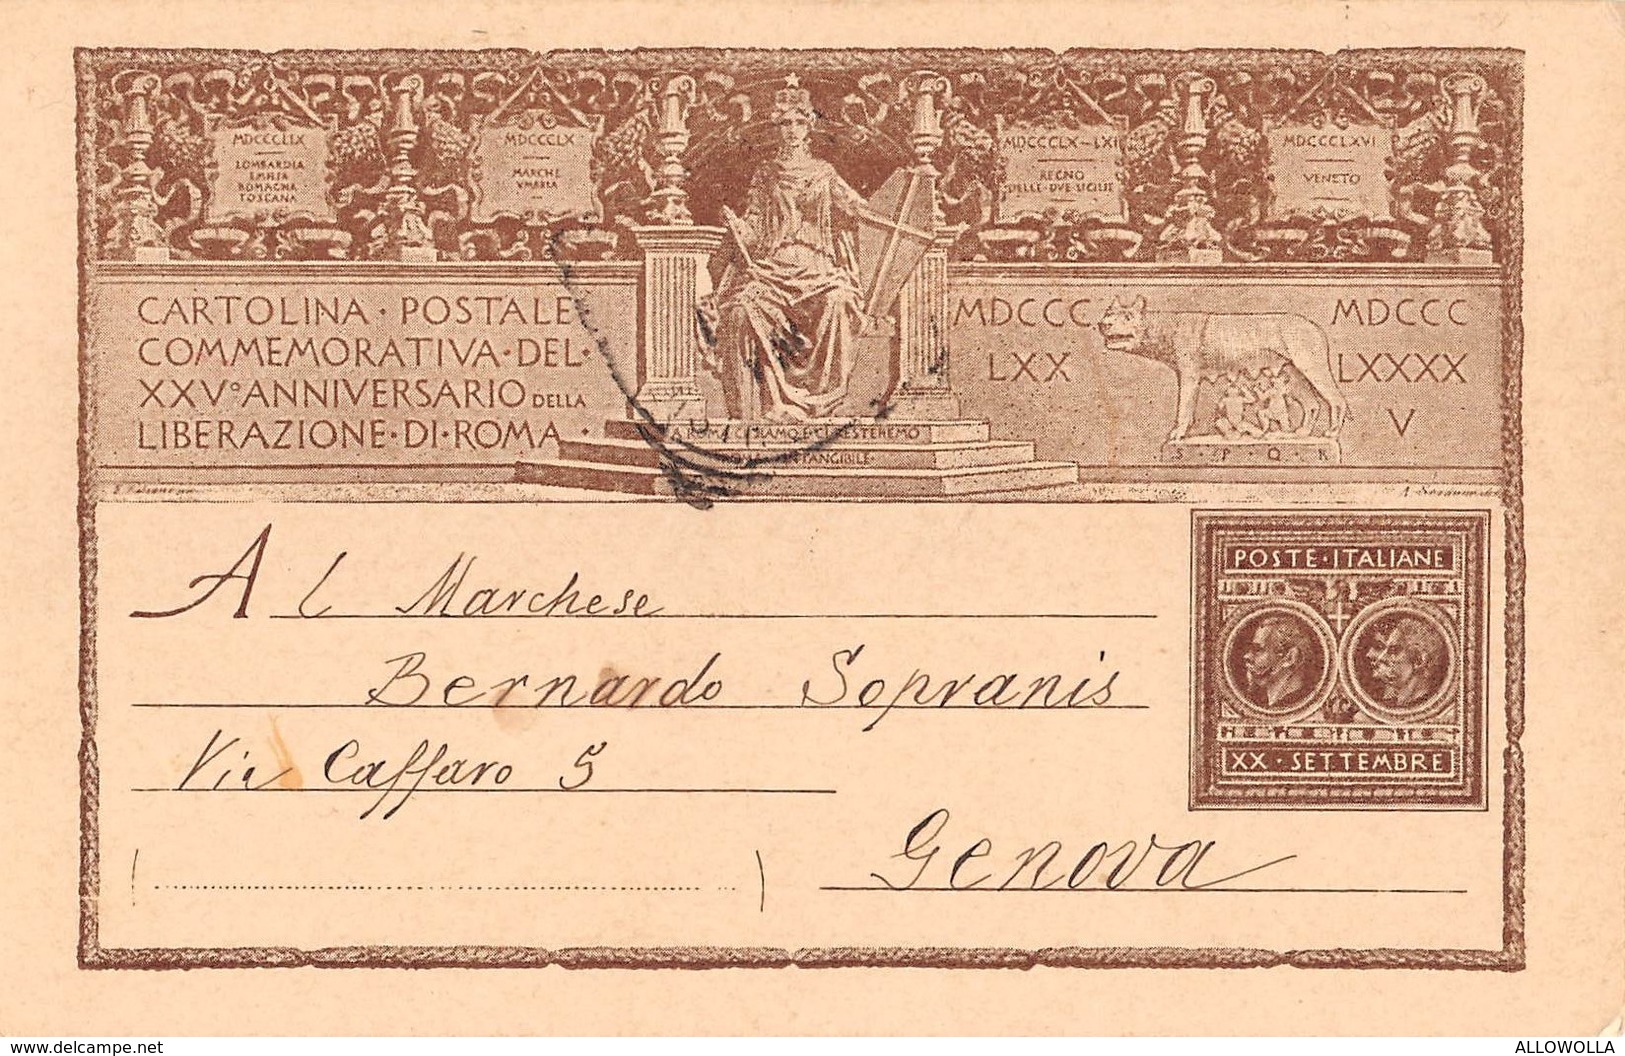 MDCCCLIX
LOMBARDIA
EMILIA
ROMAGNA
TOSCANA
MDCCCLX
MARCHE
VMBRIA
MDCCCLX-LXI
REGNO
DELLE·DVE·SICILIE
MDCCCLXVI
VENETO
CARTOLINA · POSTALE
COMMEMORATIVA·DEL·
XXVº ANNIVERSARIO DELLA
LIBERAZIONE·DI·ROMA·
MDCCC
LXX
MDCCC
LXXXX
V
S · P · Q · R
A ROMA CI SIAMO E CI RESTEREMO
INTANGIBILE
POSTE·ITALIANE
XX·SETTEMBRE
Al Marchese
Bernardo Sopranis
Via Caffaro 5
Genova
https://www.delcampe.net
ALLOWOLLA